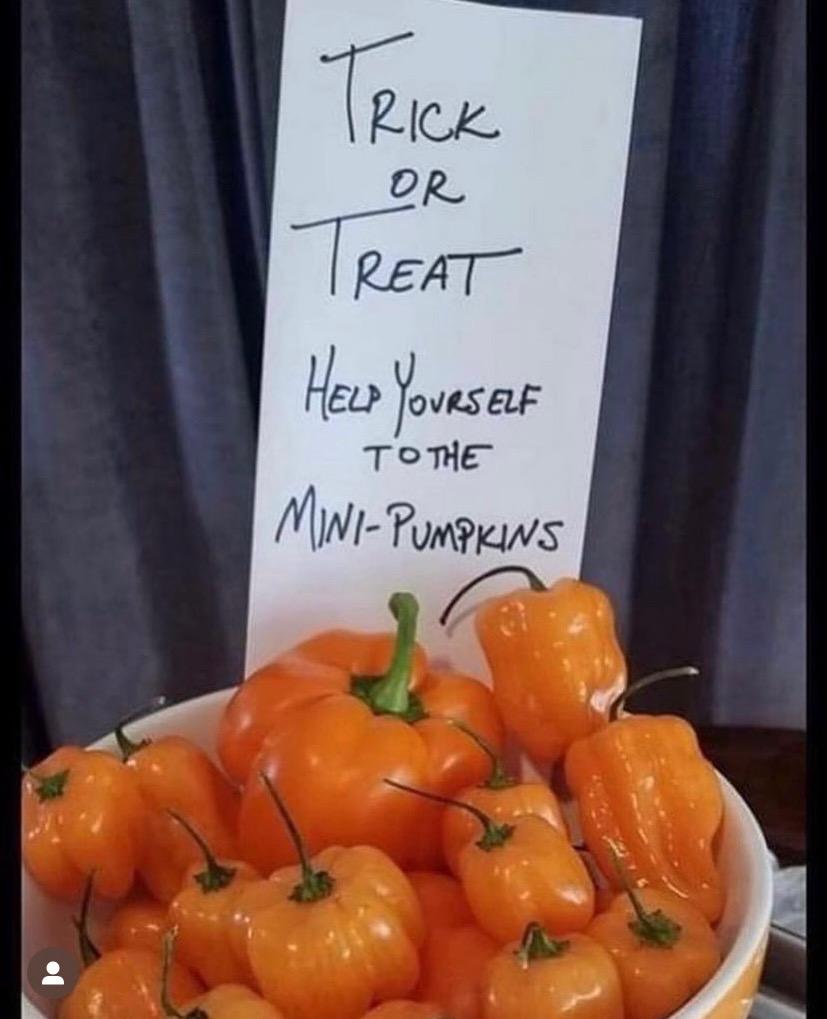 TRICK
OR
TREAT
HELP YOURSELF
TO THE
MINI-PUMPKINS